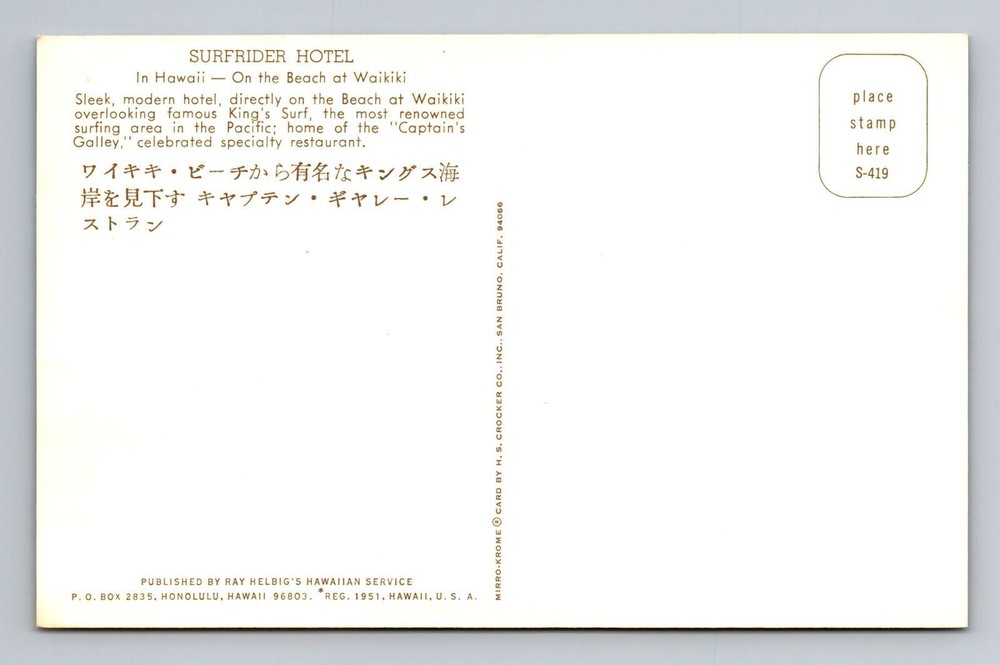 SURFRIDER HOTEL
In Hawaii — On the Beach at Waikiki
Sleek, modern hotel, directly on the Beach at Waikiki
overlooking famous King's Surf, the most renowned
surfing area in the Pacific; home of the "Captain's
Galley," celebrated specialty restaurant.
ワイキキ・ビーチから有名なキングス海
岸を見下す キヤプテン・ギヤレー・レ
ストラン
PUBLISHED BY RAY HELBIG'S HAWAIIAN SERVICE
P. O. BOX 2835, HONOLULU, HAWAII 96803. *REG. 1951, HAWAII, U. S. A.
MIRRO-KROME ® CARD BY H. S. CROCKER CO., INC., SAN BRUNO, CALIF. 94066
place
stamp
here
S-419